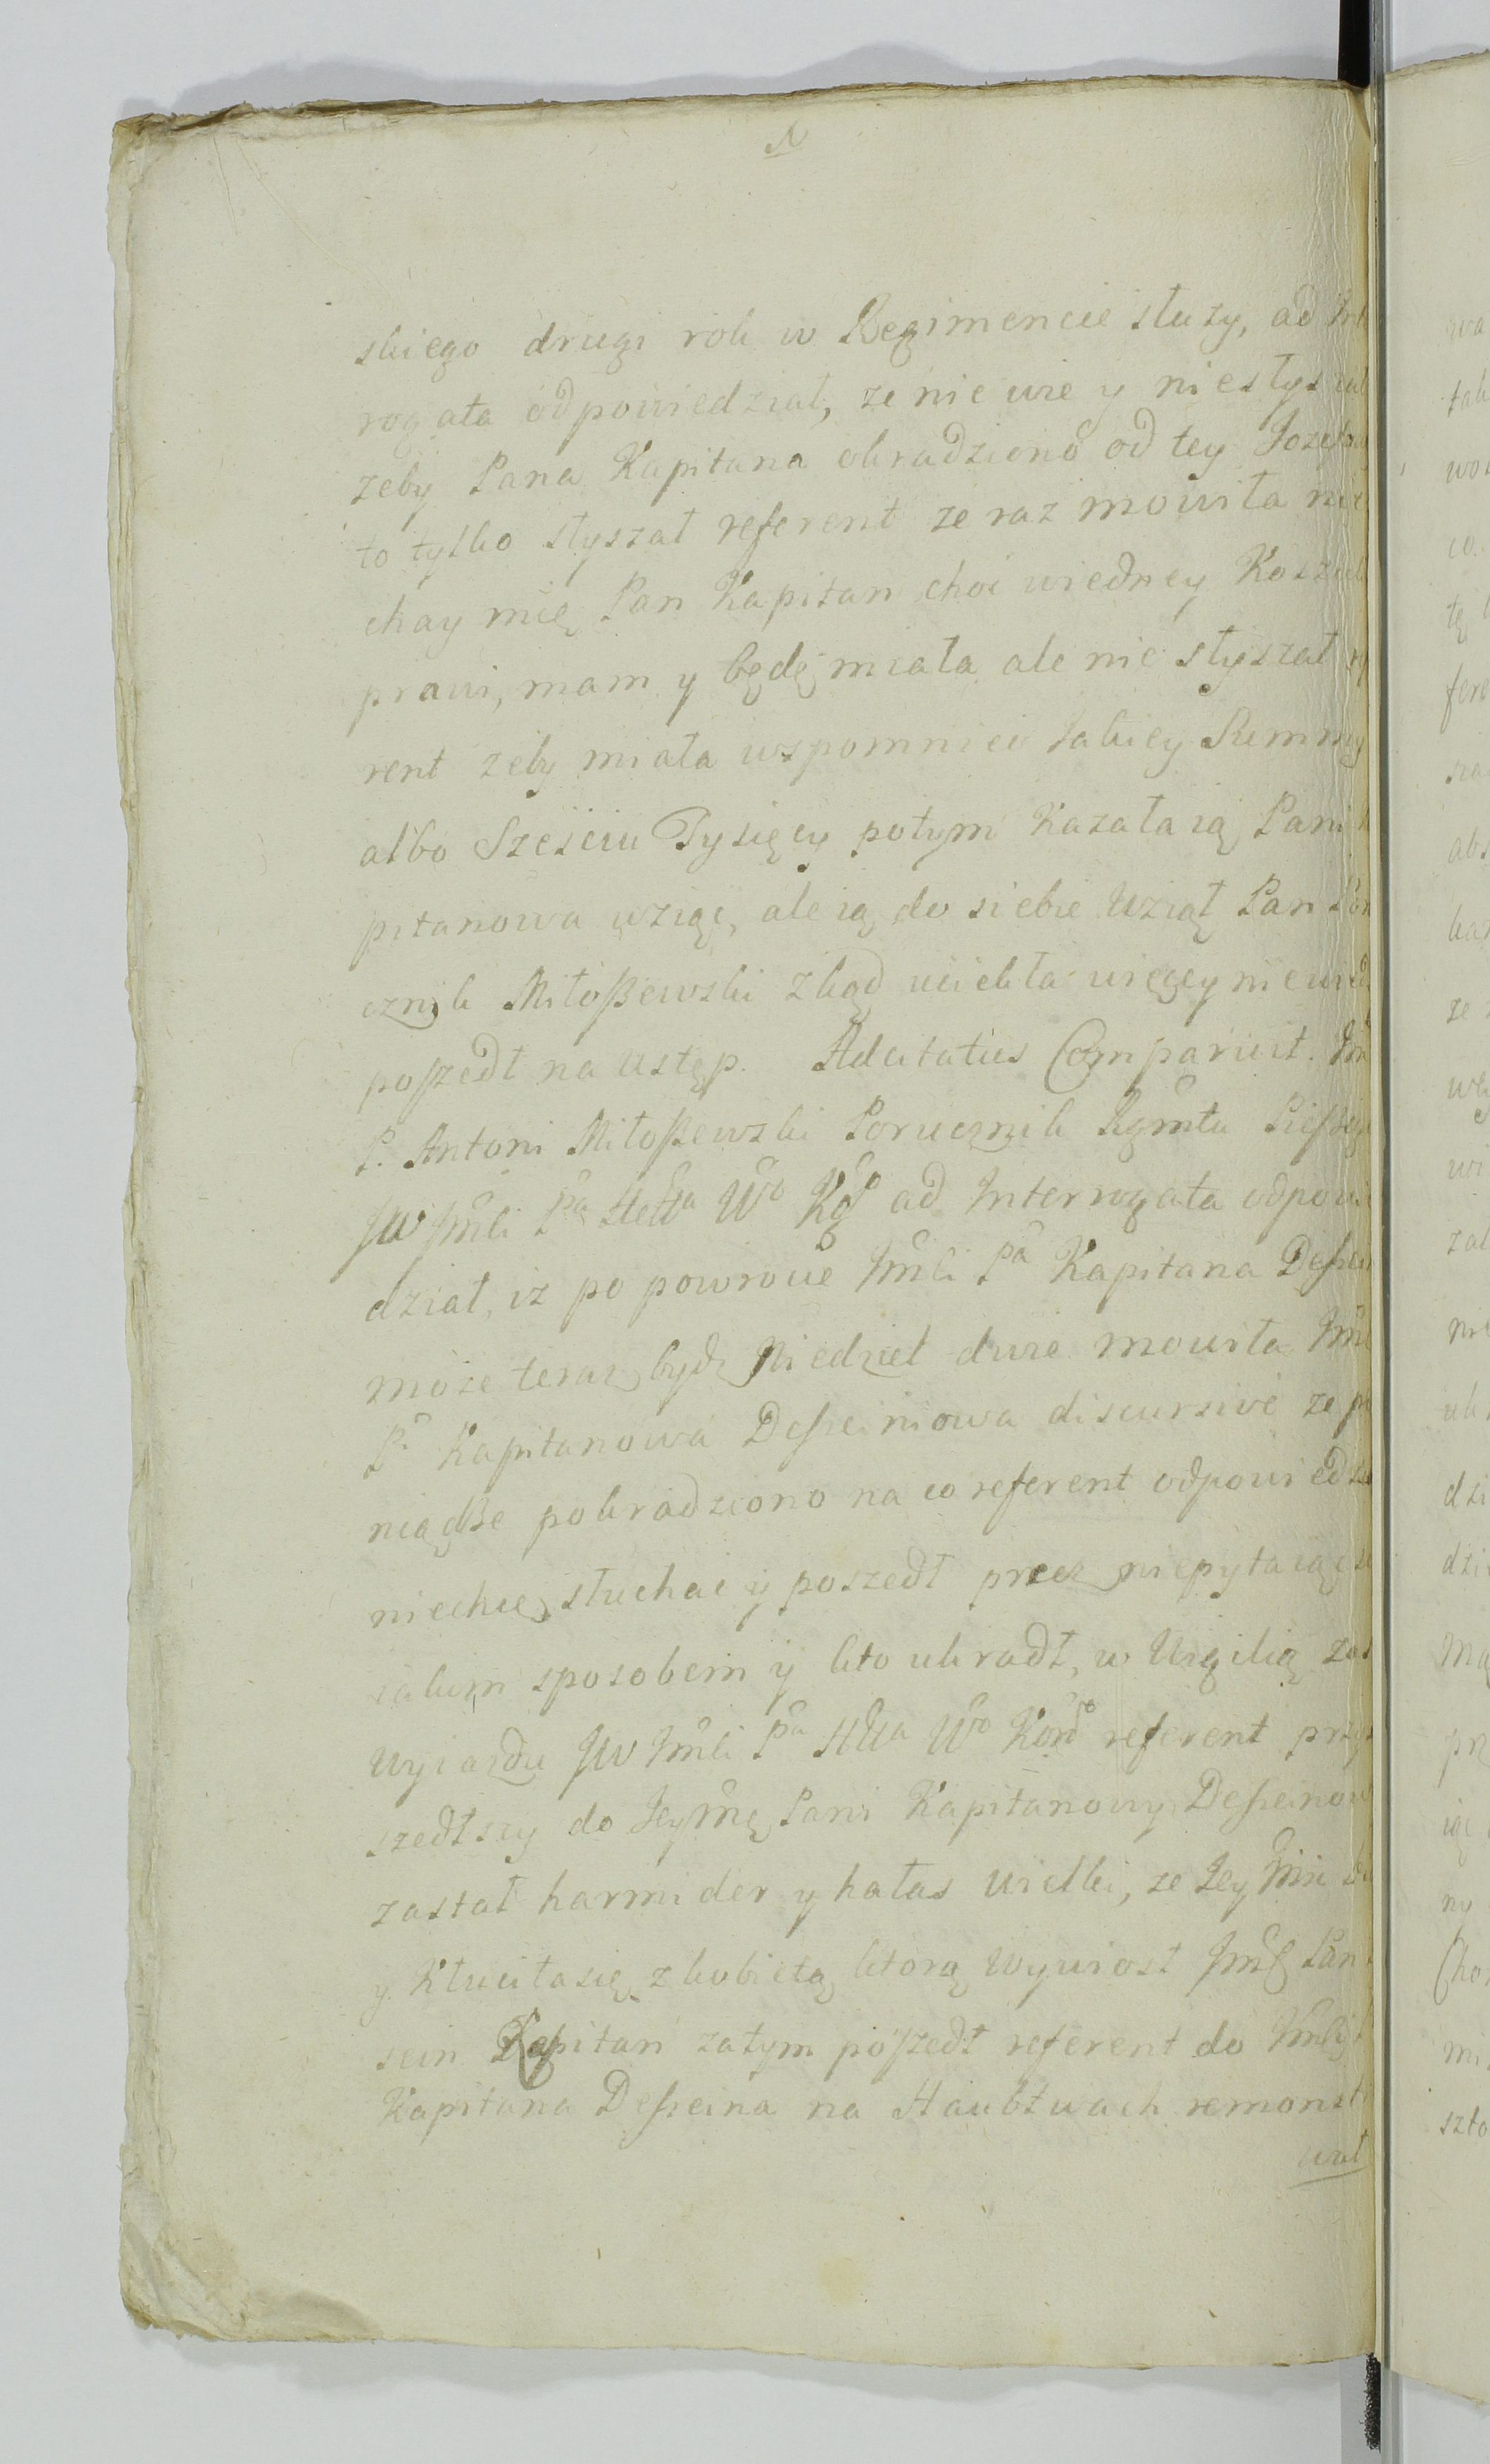 N
skiego drugi rok w Regimencie służy, ad Int
rogata odpowiedział, ze nie wie y niesłyszał
zeby Pana Kapitana okradziono od tey Jozefow
to tylko słyszał referent ze raz mowiła nie
chay mię Pan Kapitan choc wiedney Koszuli
prawi, mam y będę miała ale nie słyszał re
rent zeby miała wspomniec takiey Summy
albo Szesciu Tysięcy potym Kazała ią Pani
pitanowa wziąc, ale ią do siebie Wziął Pan Por
cznik Miłoßewski zkąd uciekła więcey niewie
poszedł na ustęp. Adcitatus Comparuit. Jm
P. Antoni Miłoßewski Porucznik Rgmtu Pieß
JW Jmci Pa Hetta Wo Kgo ad Interrogata odpowi
dział, iz po powrocie Jmci Pa Kapitana Desein
może teraz bydz Niedziel dwie mowiła Jm
Pi Kapitanowa Deseiniowa discursivè ze pi
niądße pokradziono na co referent odpowiedział
niechcę słuchac y poszedł precz niepytaiąc się
iakim sposobem y kto ukradł, w Wigilią zas
Wyiazdu JW Jmci Pa Htta Wo Kord referent przy
szedłszy do Jeymę Pani Kapitanowy Deseinow
zastał harmider y hałas wielki, ze Jeymc
y Kłuciłasię z kobietą ktorą wywiosł Jmć Pan
sein Kapitan zatym poszedł referent do Jmci
Kapitana Deseina na Haubtwach remonst
wał